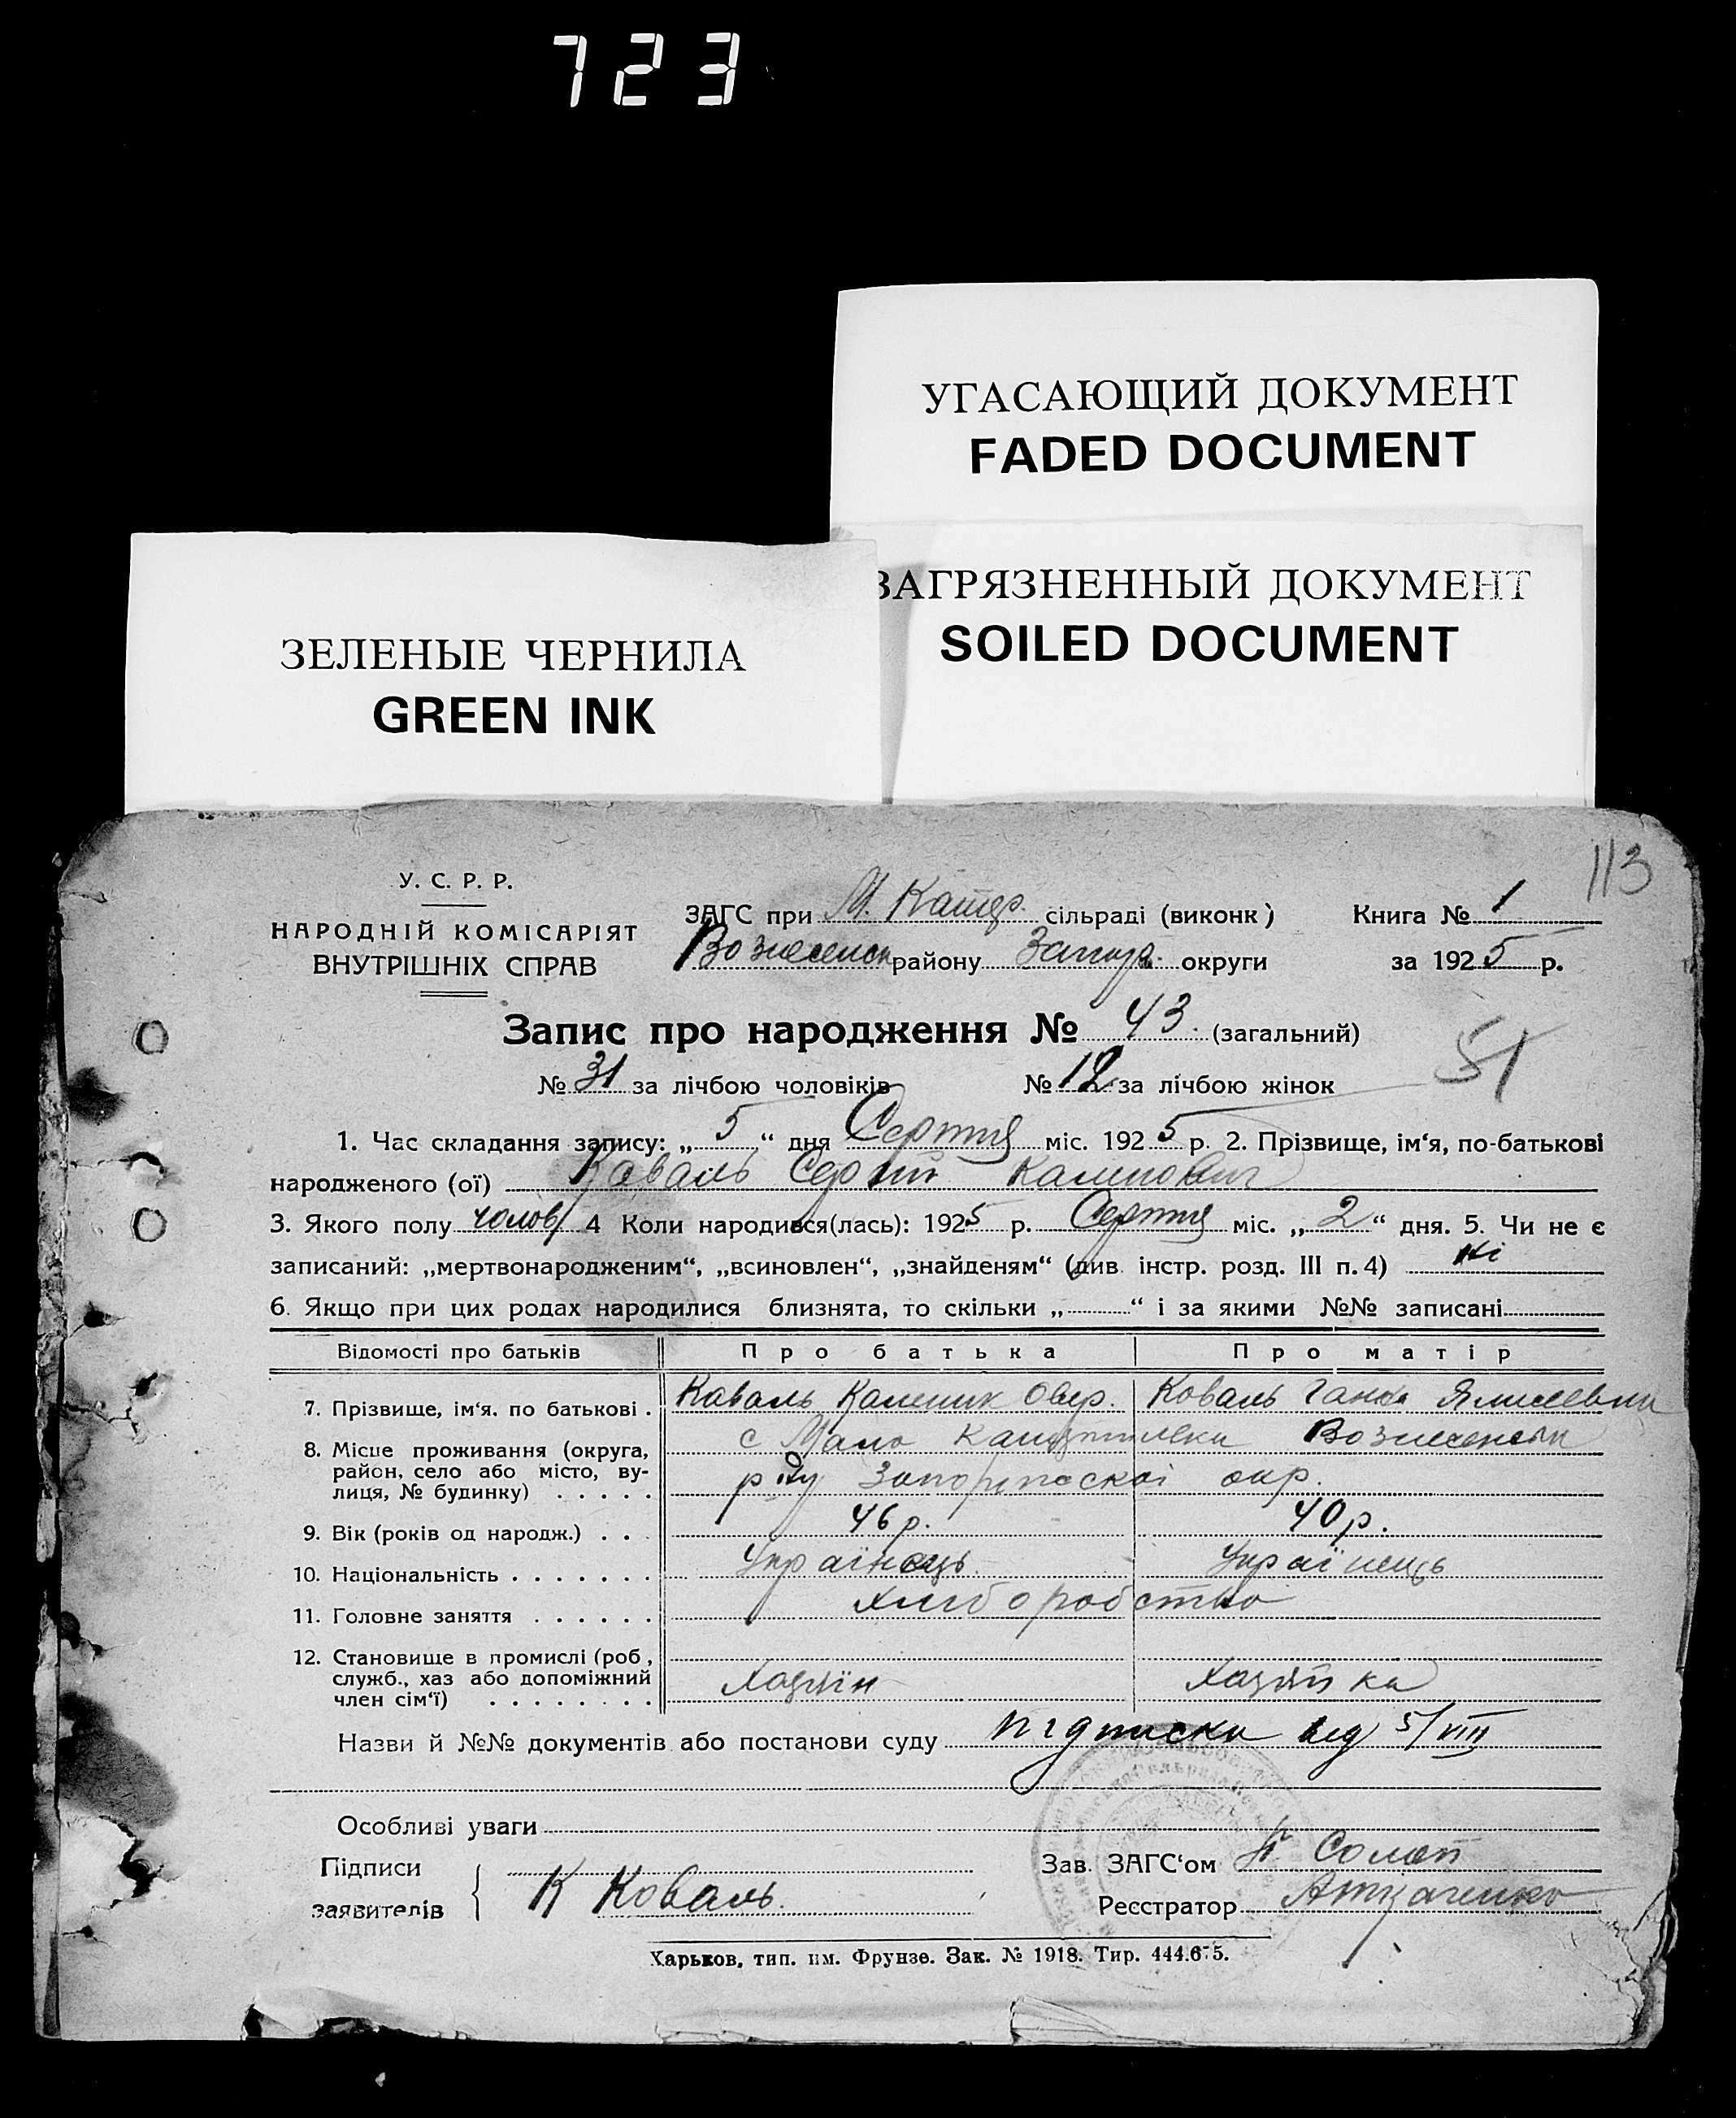 723
УГАСАЮЩИЙ ДОКУМЕНТ
FADED DOCUMENT
ЗАГРЯЗНЕННЫЙ ДОКУМЕНТ
SOILED DOCUMENT
ЗЕЛЕНЫЕ ЧЕРНИЛА
GREEN INK
113
У. С. Р. Р.
НАРОДНІЙ КОМІСАРІЯТ
ВНУТРІШНІХ СПРАВ
ЗАГС при М. Катер. сільраді (виконк) Книга № 1
Вознесенск району Запор. округи за 1925 р.
Запис про народження № 43. (загальний)
51
№ 31 за лічбою чоловіків № 12 за лічбою жінок
1. Час складання запису: „ 5 “ дня Серпня міс. 1925 р. 2. Прізвище, ім‘я, по-батькові
народженого (ої) Коваль Сергій Каленович
3. Якого полу чолов. 4 Коли народився(лась): 1925 р. Серпня міс. „ 2 “ дня. 5. Чи не є
записаний: „мертвонародженим“, „всиновлен“, „знайденям“ (див. інстр. розд. III п. 4) ні
6. Якщо при цих родах народилися близнята, то скільки „ “ і за якими №№ записані
Відомості про батьків Про батька Про матір
7. Прізвище, ім‘я, по батькові . Коваль Каленик Овер. Коваль Ганна
8. Місце проживання (округа, район, село або місто, вулиця, № будинку) . . . . . с Мало Вознесенськ
р ну Запоріпаскоі окр.
9. Вік (років од народж.) . . . 46 р. 40 р.
10. Національність . . . . . . . Українець Українець
11. Головне заняття . . . . . . Хлиборобство
12. Становище в промислі (роб, служб., хаз або допоміжний член сім‘ї) . . . . . . . . Хазяїн Хазяйка
Назви й №№ документів або постанови суду підписка від 5/VIII
Особливі уваги
Підписи
заявителів К Коваль.
Зав. ЗАГС‘ом
Реєстратор Аткаченко
Харьков, тип. им. Фрунзе. Зак. № 1918. Тир. 444.675.